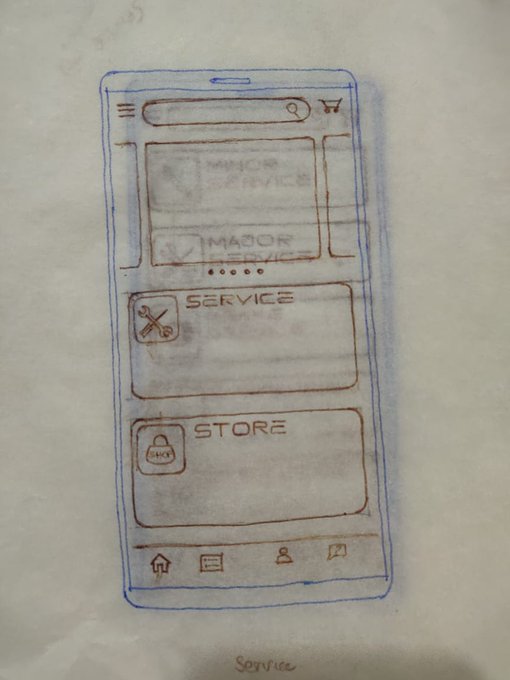 MINOR
SERVICE
MAJOR
SERVICE
SERVICE
STORE
SHOP
Service